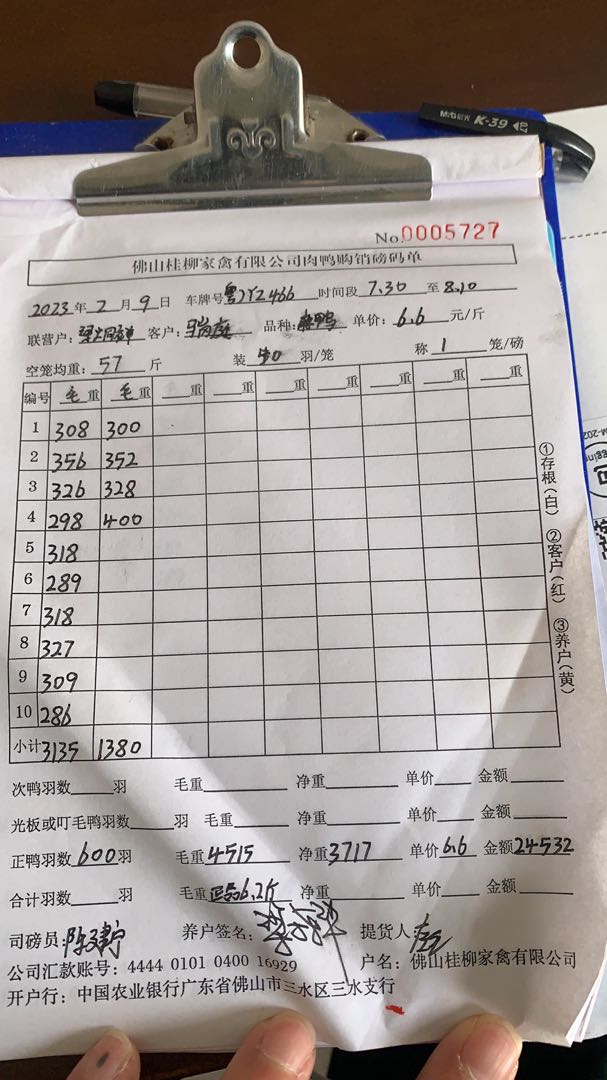 M&G K-39
No.0005727
佛山桂柳家禽有限公司肉鸭购销磅码单
2023年2月9日 车牌号 粤 466 时间段 7.30 至 8.10
联营户: 客户: 品种: 鸭 单价: 6.6 元/斤
空笼均重: 57 斤 装 羽/笼 称 1 笼/磅
编号 毛重 毛重 重 重 重 重 重 重
1 308 300
2 356 352
3 326 328
4 298 400
5 318
6 289
7 318
8 327
9 309
10 286
小计 3135 1380
①存根(白) ②客户(红) ③养户(黄)
次鸭羽数 羽 毛重 净重 单价 金额
光板或叮毛鸭羽数 羽 毛重 净重 单价 金额
正鸭羽数 600 羽 毛重 4515 净重 3717 单价 6.6 金额 24532
合计羽数 羽 毛重 6.2斤 净重 单价 金额
司磅员: 养户签名: 提货人:
公司汇款账号: 4444 0101 0400 16929 户名: 佛山桂柳家禽有限公司
开户行: 中国农业银行广东省佛山市三水区三水支行